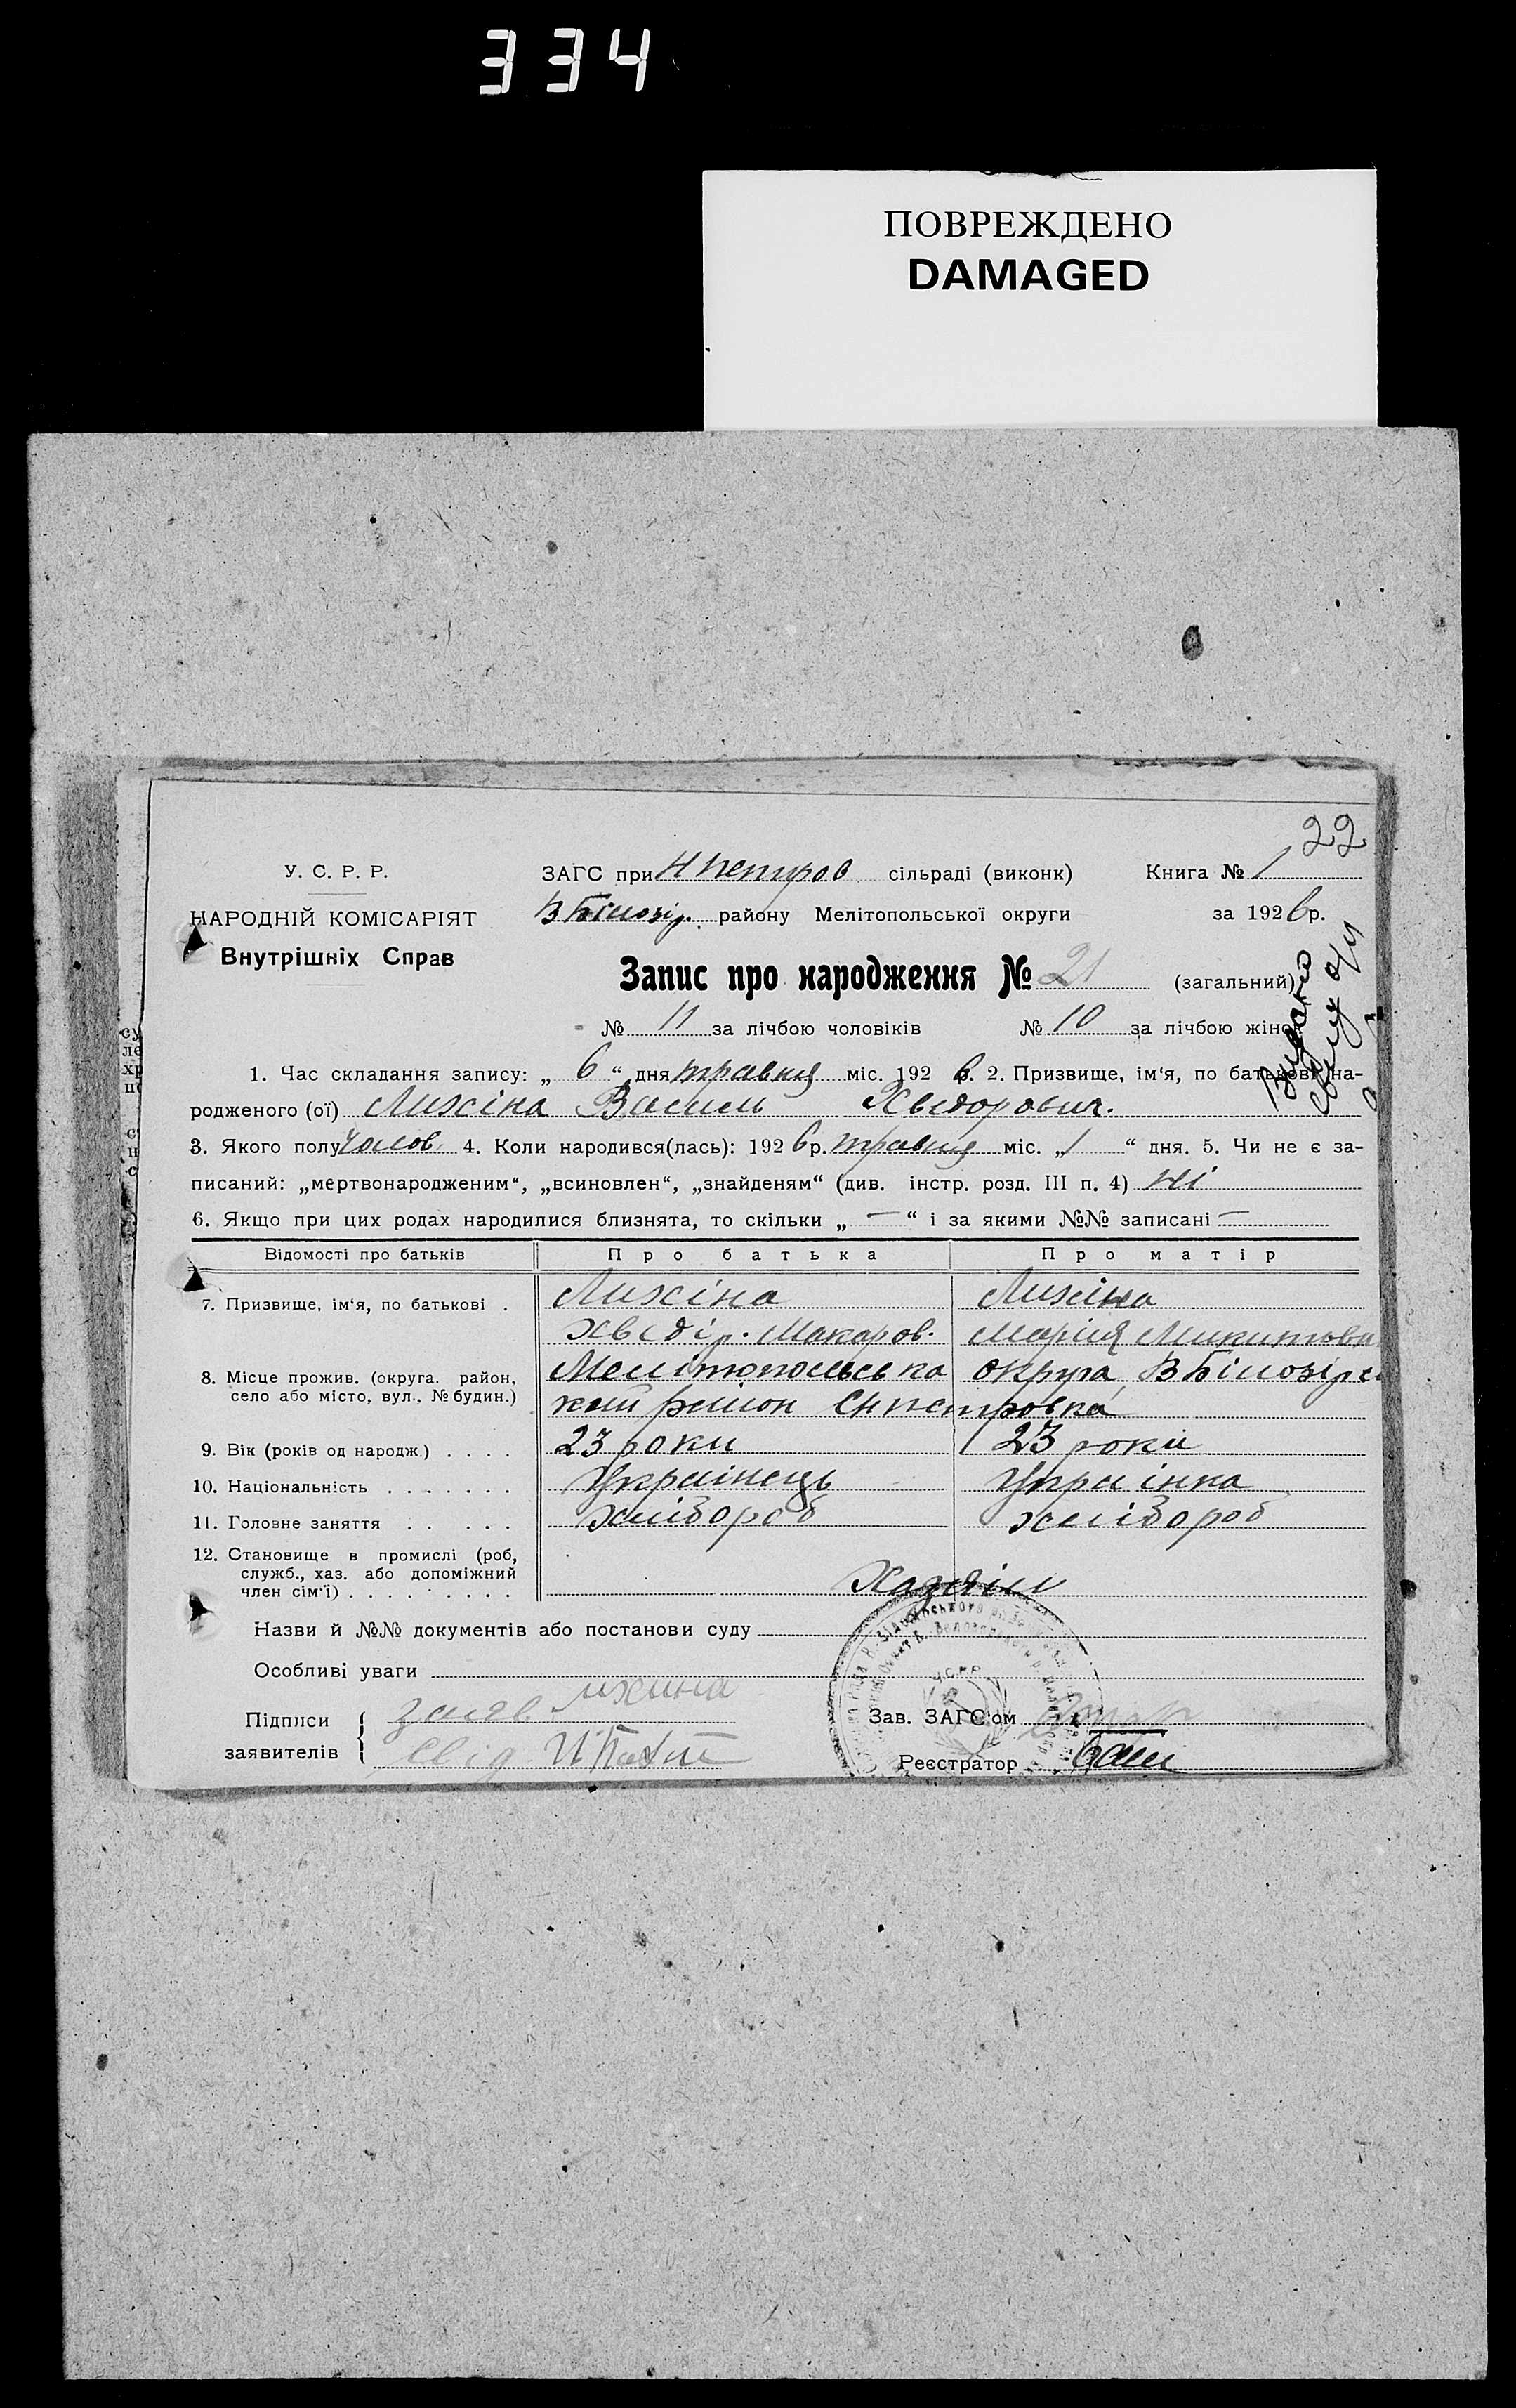 334
ПОВРЕЖДЕНО
DAMAGED
22
У. С. Р. Р.
НАРОДНІЙ КОМІСАРІЯТ
Внутрішніх Справ
ЗАГС при Нпетров сільраді (виконк) Книга № 1
ВБілозір. району Мелітопольської округи за 1926 р.
Запис про народження № 21 (загальний)
№ 11 за лічбою чоловіків № 10 за лічбою жінок
Видано
1. Час складання запису: „ 6 “ дня травня міс. 192 6 р. 2. Призвище, ім‘я, по батькові на-
родженого (ої) Лихіна Василь Хведорович.
3. Якого полу чолов. 4. Коли народився(лась): 192 6 р. травня міс. „ 1 “ дня. 5. Чи не є за-
писаний: „мертвонародженим“, „всиновлен“, „знайденям“ (див. інстр. розд. III п. 4) ні
6. Якщо при цих родах народилися близнята, то скільки „ — “ і за якими №№ записані —
Відомості про батьків Про батька Про матір
7. Призвище, ім‘я, по батькові . Лихіна Лихіна
Хведір. Макаров. Марія Микитовн
8. Місце прожив. (округа, район, Мелітопольська округа ВБілозірс
село або місто, вул., № будин.) кий район С Нпетровка
9. Вік (років од народж.) . . . . 23 роки 23 роки
10. Національність . . . . . . . Українець Українка
11. Головне заняття . . . . . хлібороб хлібороб
12. Становище в промислі (роб,
служб., хаз. або допоміжний
член сім‘ї) . . . . . . . . . Хазяїн
Назви й №№ документів або постанови суду
Особливі уваги
Підписи
заявителів
заяв Лихина
Свід
Зав. ЗАГС‘ом
Реєстратор